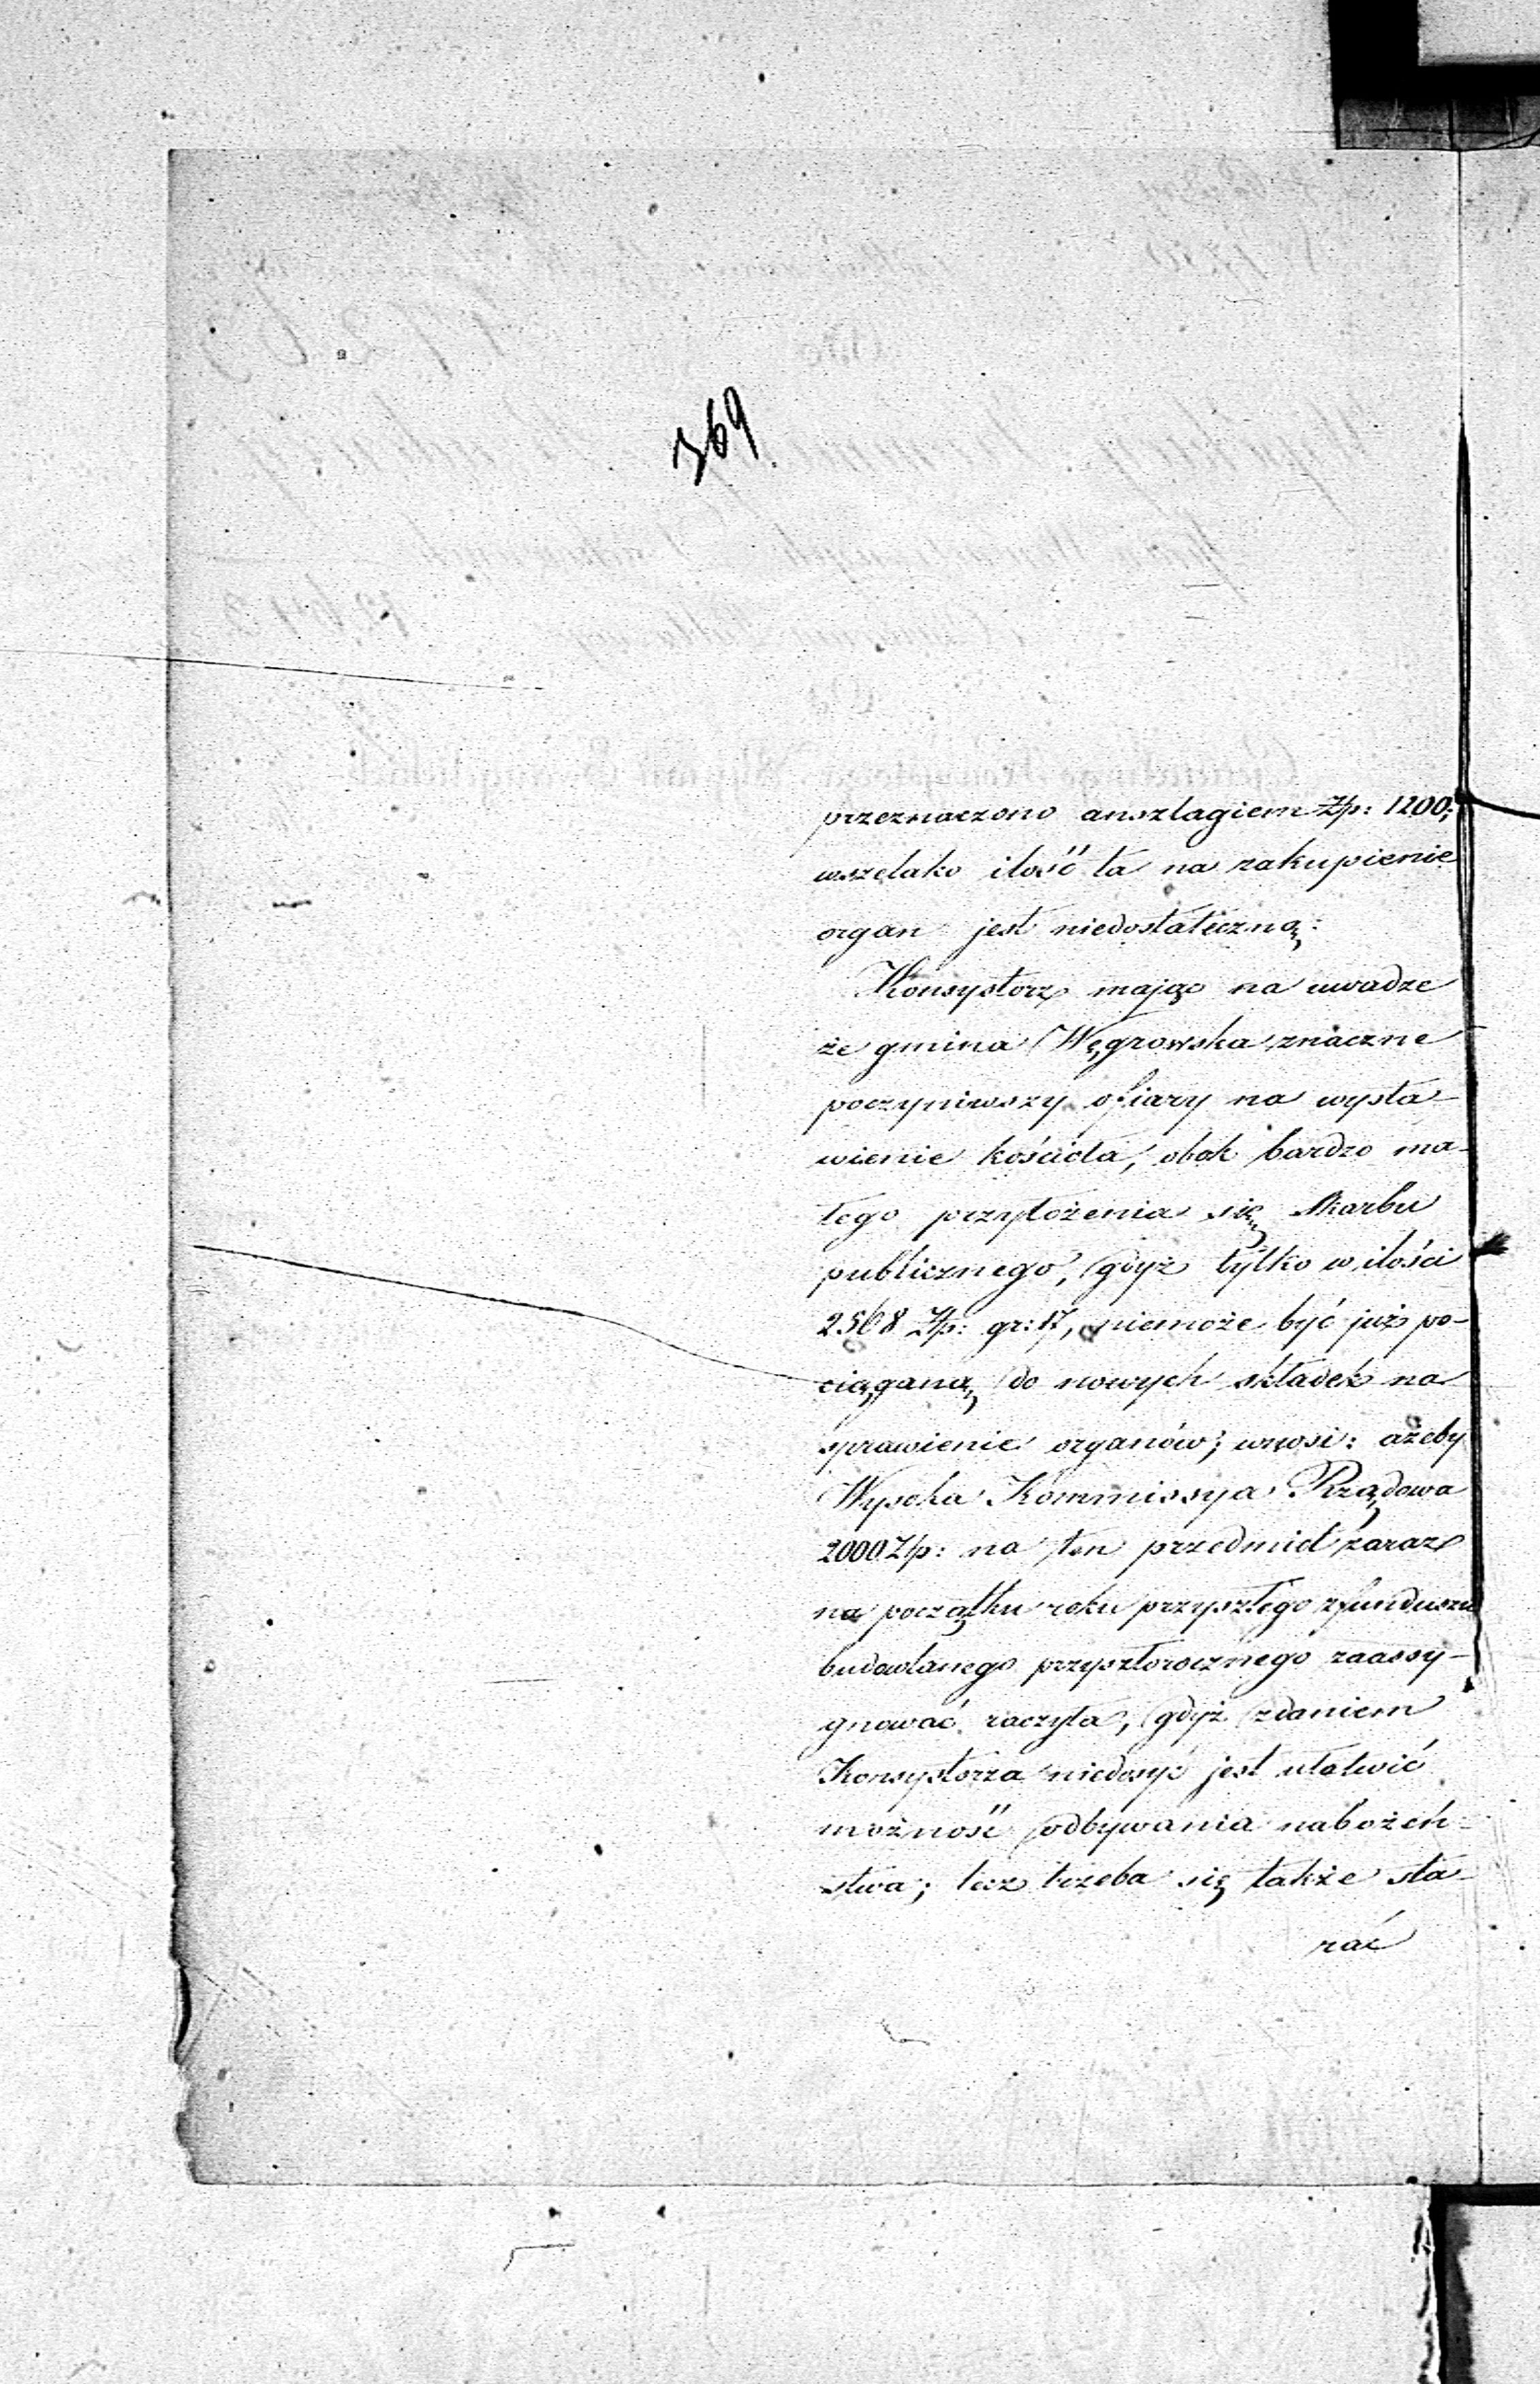 369.
przeznaczono anszlagiem Złp: 1200;
wszelako ilość ta na zakupienie
organ jest niedostateczną:
Konsystorz mając na uwadze
że gmina Węgrowska znaczne
poczyniwszy ofiary na wysta-
wienie kościoła, obok bardzo ma-
łego przyłożenia się Skarbu
publicznego, gdyż tylko w ilości
2568 Złp: gr: 17, niemoże być już po-
ciąganą do nowych składek na
sprawienie organów; wnosi: ażeby
Wysoka Kommissya Rządowa
2000 Złp: na ten przedmiot zaraz
na początku roku przyszłego z funduszu
budowlanego przyszłorocznego zaassy-
gnować raczyła, gdyż zdaniem
Konsystorza niedosyć jest ułatwić
możność odbywania nabożeń-
stwa; lecz trzeba się także sta-
rać